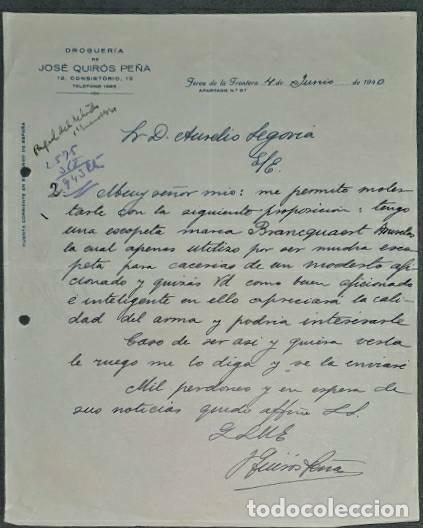 DROGUERÍA
DE
JOSÉ QUIRÓS PEÑA
12, CONSISTORIO, 12
Jerez de la Frontera 4 de Junio de 1940
APARTADO N.º 97
CUENTA CORRIENTE EN EL BANCO DE ESPAÑA
Sr D. Aurelio Segovia
S/C.
Muy señor mio: me permito moles
tarle con la siguiente proposicion: tengo
una escopeta marca Brancquaert
la cual apenas utilizo por ser mucha esco
peta para cacerias de un modesto afi
cionado y quizás Vd como buen aficionado
e inteligente en ello apreciará la cali
dad del arma y podria interesarle
Caso de ser asi y quiera verla
le ruego me lo diga y se la enviaré
Mil perdones y en espera de
sus noticias quedo affmo S.S.
J Quirós Peña
todocoleccion.net